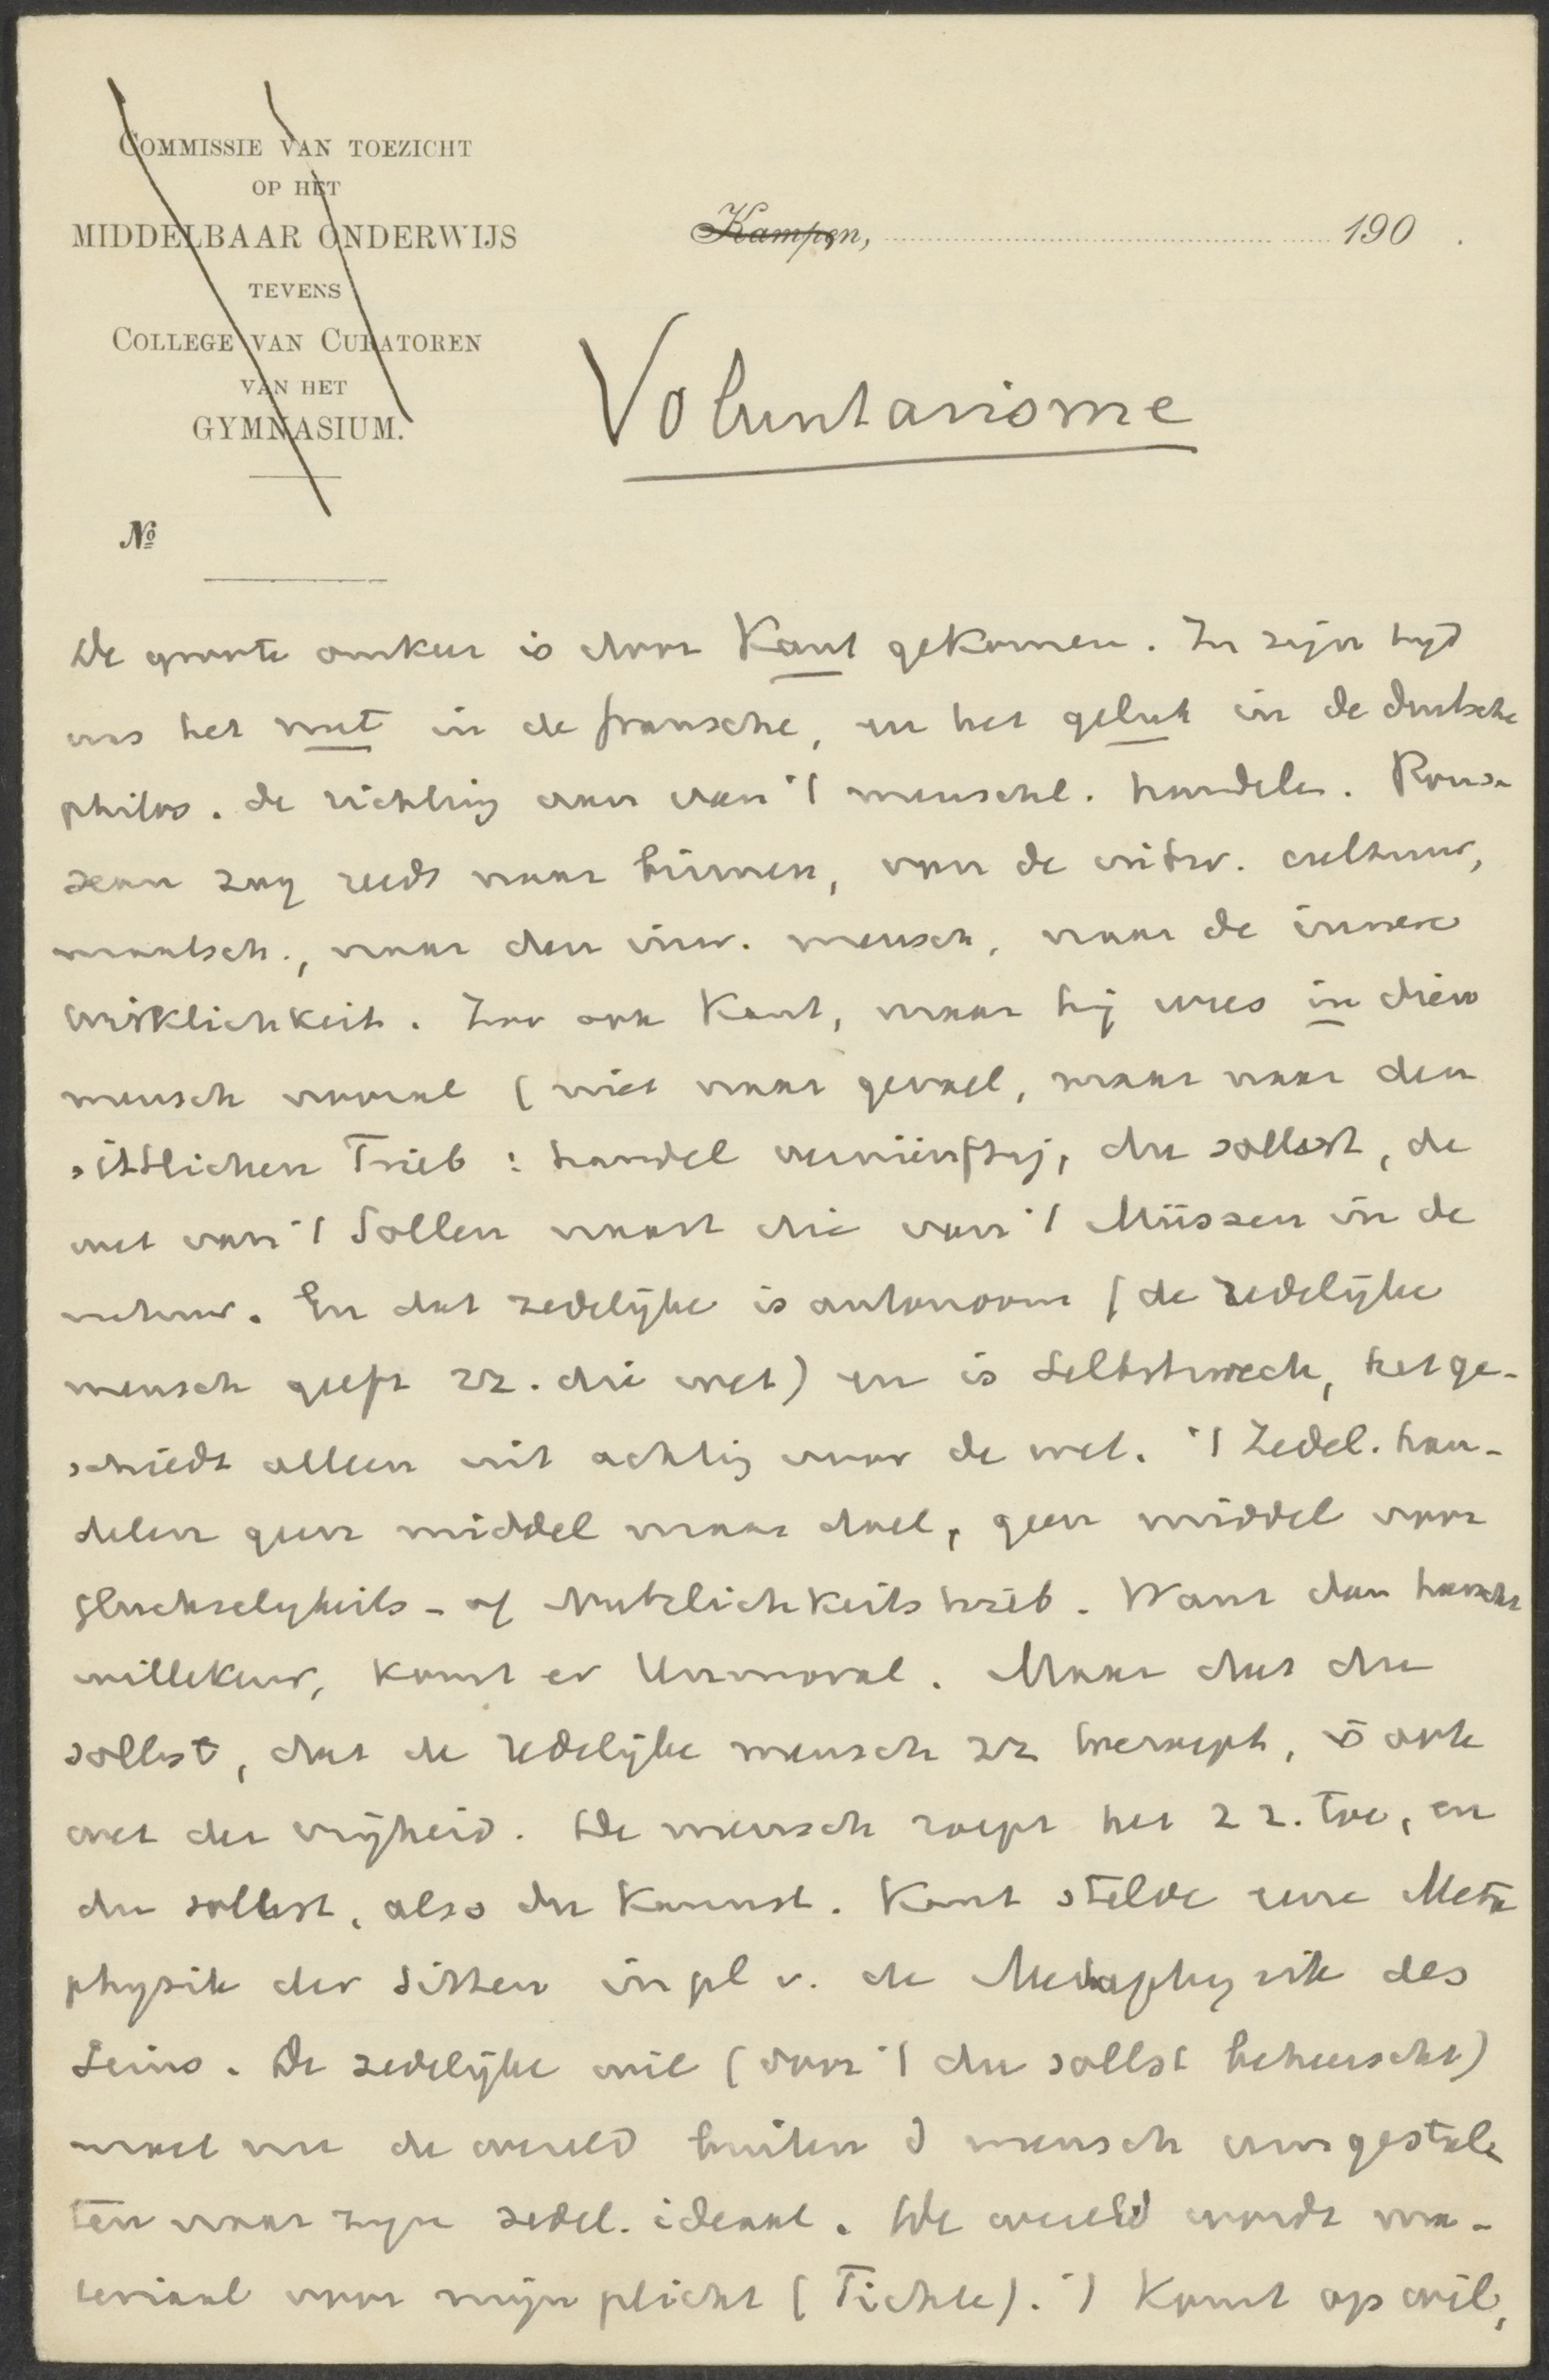 COMMISSIE VAN TOEZICHT
OP HET
MIDDELBAAR ONDERWIJS
TEVENS
COLLEGE VAN CURATOREN
VAN HET
GYMNASIUM.
Kampen, 190 .
Voluntarisme
№
De groote omkeer is door Kant gekomen. In zijn tijd
wees het nut in de fransche, en het geluk in de duitsche
philos. de richting aan van 't menschel. handelen. Rous-
seau zag reeds naar binnen, van de uitw. cultuur,
maatsch., naar den inw. mensch, naar de innere
wirklichkeit. Zoo ook Kant, maar hij wees in dien
mensch vooral (niet naar gevoel, maar naar den
sittlichen Trieb: handel vernünftig, du sollst, de
wet van 't Sollen naast die van 't Müssen in de
natuur. En dat zedelijke is autonoom (de redelijke
mensch geeft zz. die wet) en is Selbstzweck, het ge-
schiedt alleen uit achting voor de wet. 't Zedel. han-
delen geen middel maar doel, geen middel voor
glückselykeits- of Nutzlichkeitstrieb. Want dan heerscht
willekeur, komt er Unmoral. Maar dat du
sollst, dat de redelijke mensch zz toeroept, is ook
wet der vrijheid. De mensch roept het zz. toe, en
du sollst, also du kannst. Kant stelde eene Meta
physik der Sitten in pl v. de Metaphysik des
Seins. De zedelijke wil (door 't du sollst beheerscht)
moet nu de wereld buiten d mensch omgestal
ten naar zijn zedel. ideaal. De wereld wordt ma-
teriaal voor mijn plicht (Fichte). 't Komt op wil,